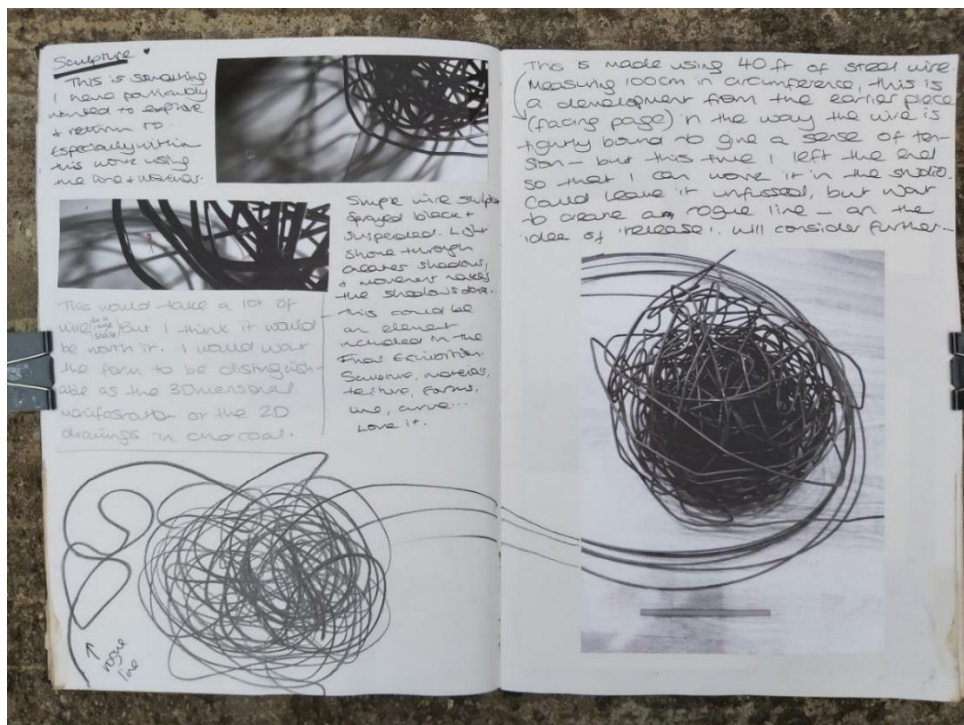 Sculpture
This is something
I have particularly
wanted to explore
+ return to.
Especially within
this work using
the line + material.
Simple wire sculpt
sprayed black +
suspended. Light
shone through
creates shadows,
+ movement makes
the shadows dance.
This could be
an element
included in the
Final Exhibition.
Sculpture, materials,
texture, forms,
line, curve...
Love it.
This would take a lot of
wire (on a large scale) But I think it would
be worth it. I would want
the form to be distinguish-
able as the 3Dimensional
manifestation of the 2D
drawings in charcoal.
rogue
line
This is made using 40 ft of steel wire
Measuring 100cm in circumference, this is
a development from the earlier piece
(facing page) in the way the wire is
tightly bound to give a sense of ten-
sion - but this time I left the end
so that I can move it in the studio.
Could leave it unfussed, but want
to create a rogue line - an the
idea of 'release'. Will consider further...